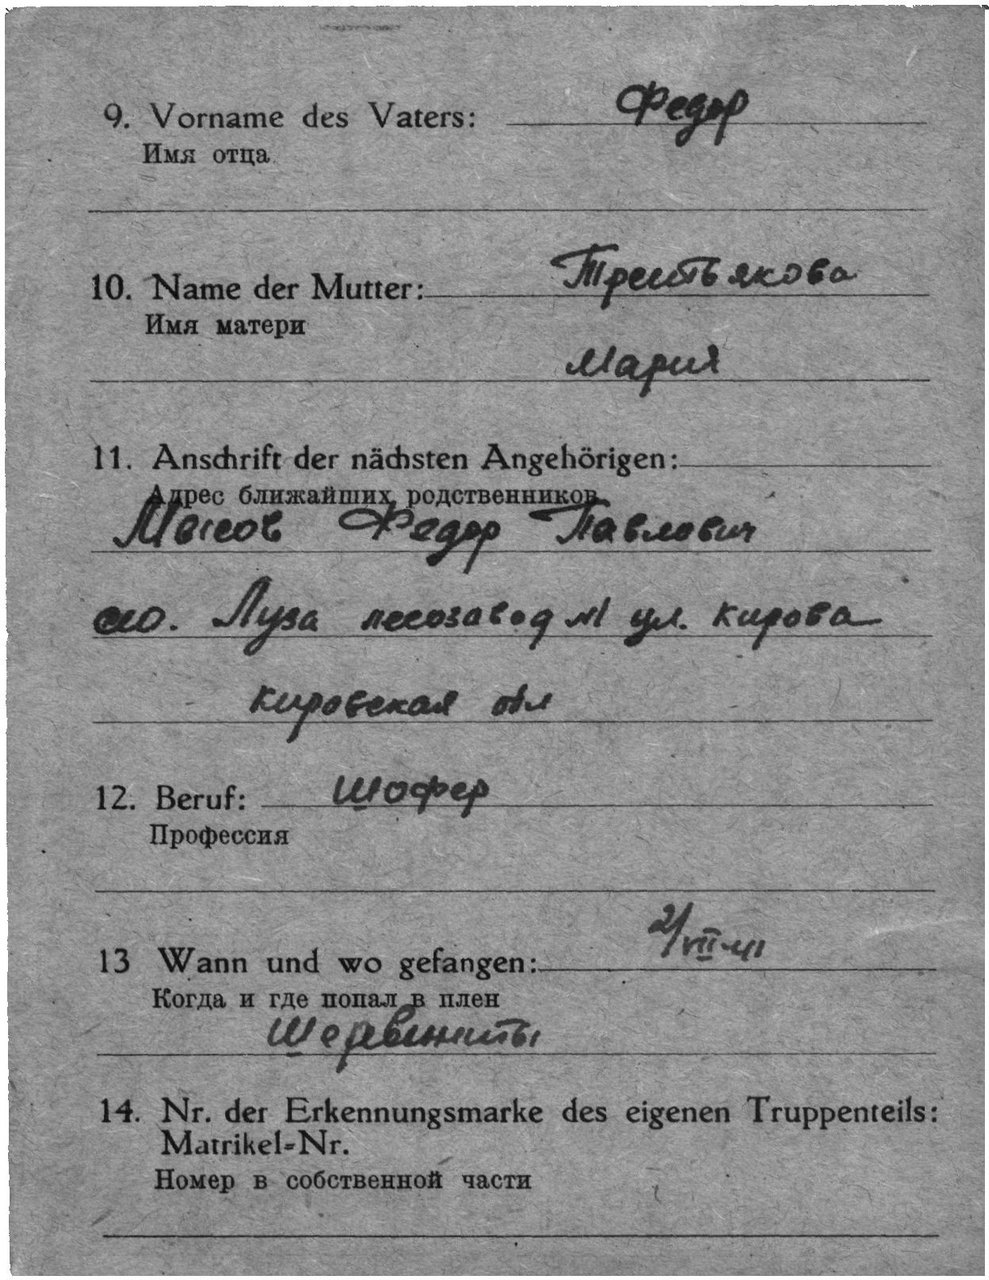 9. Vorname des Vaters: Федор
Имя отца
10. Name der Mutter: Третьякова
Имя матери
Мария
11. Anschrift der nächsten Angehörigen:
Адрес ближайших родственников
Федор Павлович
Луза лесозавод №1 ул. Кирова
Кировская обл
12. Beruf: шофер
Профессия
13 Wann und wo gefangen: 2/VII-41
Когда и где попал в плен
14. Nr. der Erkennungsmarke des eigenen Truppenteils:
Matrikel-Nr.
Номер в собственной части